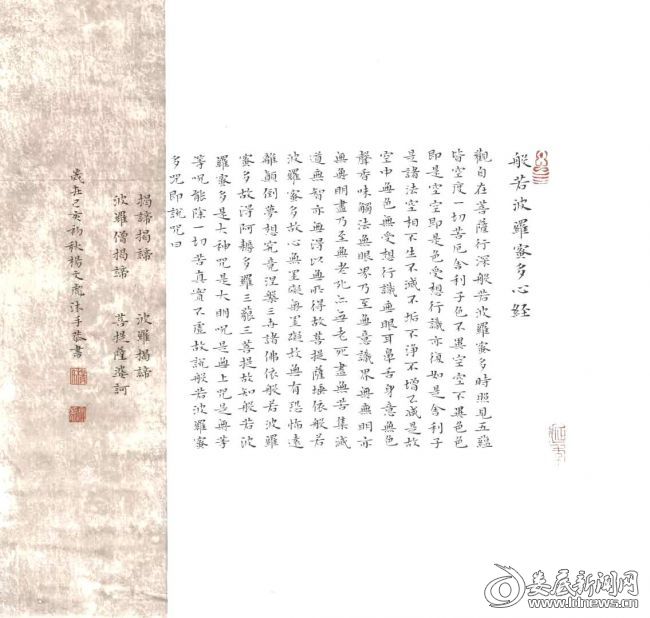 般若波羅蜜多心經
觀自在菩薩行深般若波羅蜜多時照見五蘊
皆空度一切苦厄舍利子色不異空空不異色色
即是空空即是色受想行識亦復如是舍利子
是諸法空相不生不滅不垢不淨不增不減是故
空中無色無受想行識無眼耳鼻舌身意無色
聲香味觸法無眼界乃至無意識界無無明亦
無無明盡乃至無老死亦無老死盡無苦集滅
道無智亦無得以無所得故菩提薩埵依般若
波羅蜜多故心無罣礙無罣礙故無有恐怖遠
離顛倒夢想究竟涅槃三世諸佛依般若波羅
蜜多故得阿耨多羅三藐三菩提故知般若波
羅蜜多是大神咒是大明咒是無上咒是無等
等咒能除一切苦真實不虛故說般若波羅蜜
多咒即說咒曰
揭諦揭諦 波羅揭諦
波羅僧揭諦 菩提薩婆訶
歲在己亥初秋楊文虎沐手恭書
娄底新闻网
www.ldnews.cn